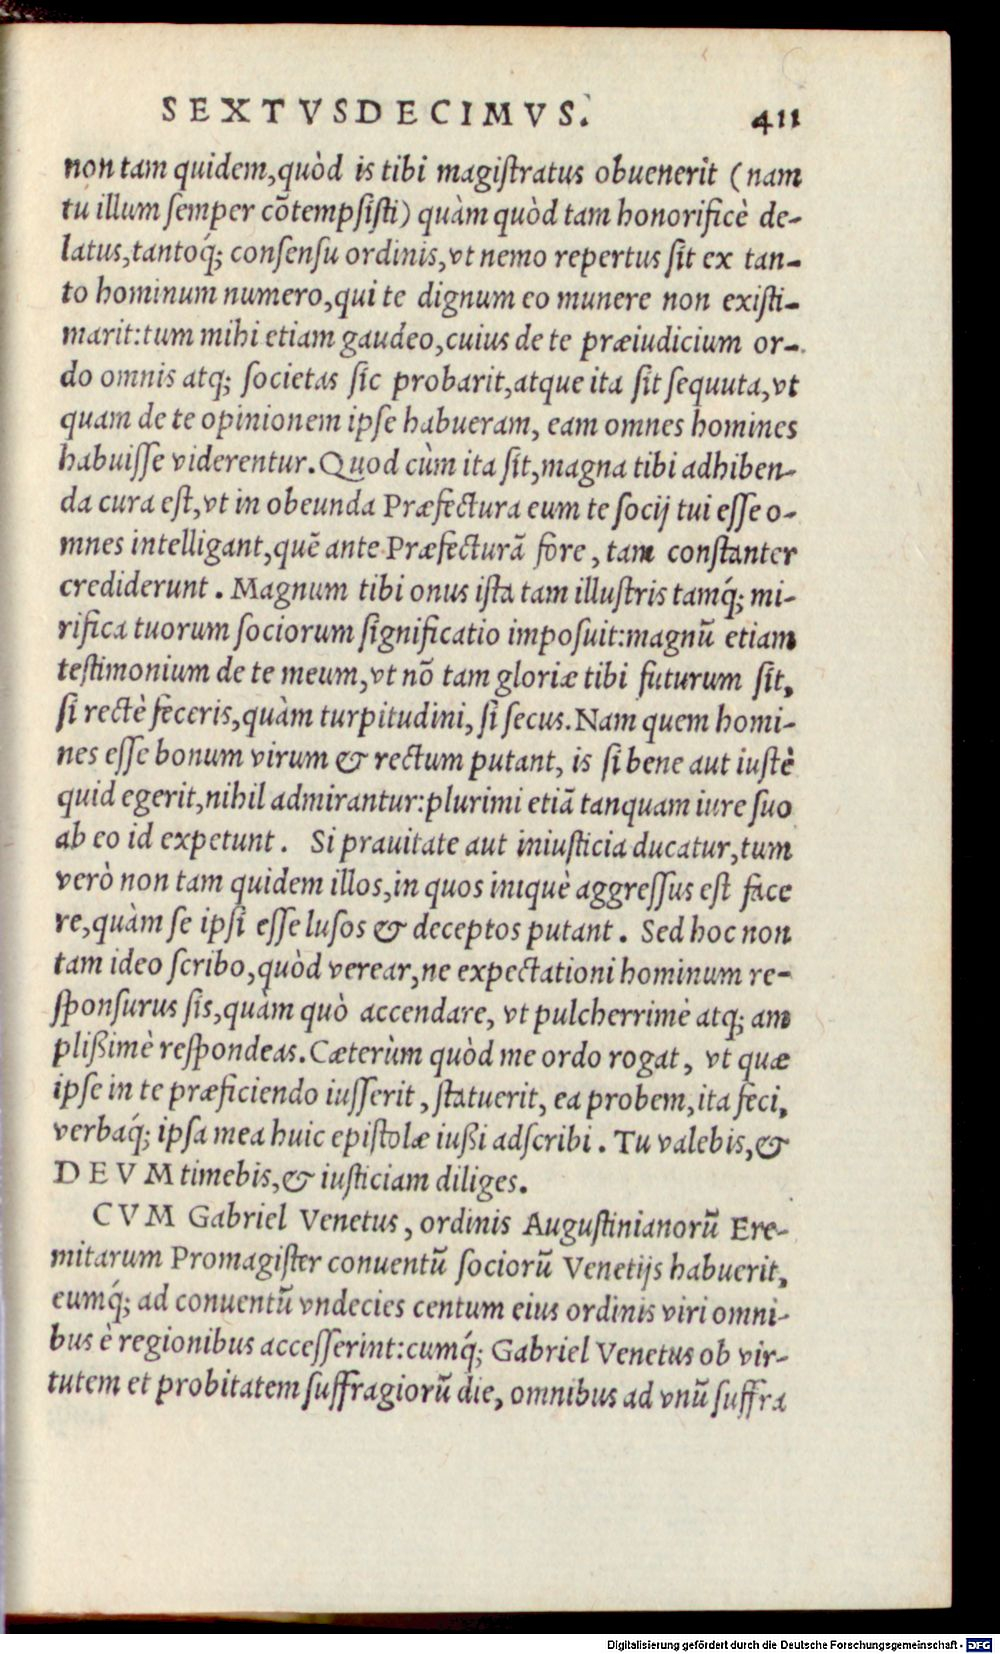 SEXTVSDECIMVS. 411
non tam quidem,quòd is tibi magiſtratus obuenerit (nam
tu illum ſemper cõtempſiſti) quàm quòd tam honorificè de-
latus,tantoq́; conſenſu ordinis,vt nemo repertus ſit ex tan-
to hominum numero,qui te dignum eo munere non exiſti-
marit:tum mihi etiam gaudeo,cuius de te præiudicium or-
do omnis atq; ſocietas ſic probarit,atque ita ſit ſequuta,vt
quam de te opinionem ipſe habueram, eam omnes homines
habuiſſe viderentur. Quod cùm ita ſit,magna tibi adhiben-
da cura eſt,vt in obeunda Præfectura eum te ſocij tui eſſe o-
mnes intelligant,quẽ ante Præfecturã fore, tam conſtanter
crediderunt. Magnum tibi onus iſta tam illuſtris tamq́; mi-
rifica tuorum ſociorum ſignificatio impoſuit:magnũ etiam
teſtimonium de te meum,vt nõ tam gloriæ tibi futurum ſit,
ſi rectè feceris,quàm turpitudini, ſi ſecus. Nam quem homi-
nes eſſe bonum virum & rectum putant, is ſi bene aut iuſtè
quid egerit,nihil admirantur:plurimi etiã tanquam iure ſuo
ab eo id expetunt. Si prauitate aut iniuſticia ducatur,tum
verò non tam quidem illos,in quos iniquè aggreſſus eſt face
re,quàm ſe ipſi eſſe luſos & deceptos putant. Sed hoc non
tam ideo ſcribo,quòd verear,ne expectationi hominum re-
ſponſurus ſis,quàm quò accendare, vt pulcherrimè atq; am
pliſſimè reſpondeas. Cæterùm quòd me ordo rogat, vt quæ
ipſe in te præficiendo iuſſerit, ſtatuerit, ea probem,ita feci,
verbaq́; ipſa mea huic epiſtolæ iuſſi adſcribi. Tu valebis,&
DEVM timebis,& iuſticiam diliges.
CVM Gabriel Venetus, ordinis Auguſtinianorũ Ere-
mitarum Promagiſter conuentũ ſociorũ Venetijs habuerit,
eumq́; ad conuentũ vndecies centum eius ordinis viri omni-
bus è regionibus acceſſerint:cumq́; Gabriel Venetus ob vir-
tutem et probitatem ſuffragiorũ die, omnibus ad vnũ ſuffra
Digitalisierung gefördert durch die Deutsche Forschungsgemeinschaft - DFG